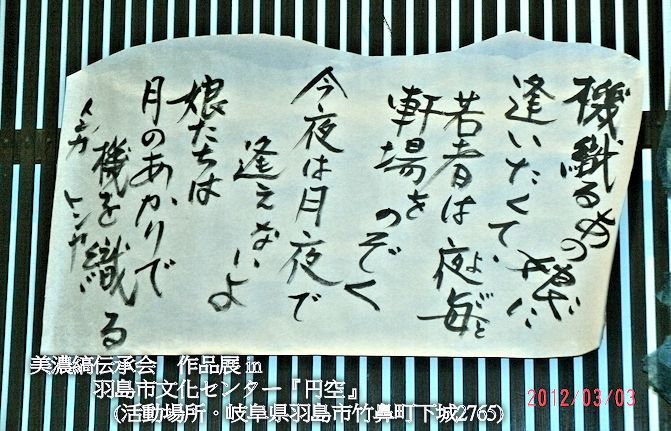 機織るあの娘に
逢いたくて、
若者は夜毎
よごと
軒場を
のぞく
今夜は月夜で
逢えないよ
娘たちは
月のあかりで
機を織る
トンカ トンヤ
美濃縞伝承会 作品展 in
羽島市文化センター『円空』
(活動場所。岐阜県羽島市竹鼻町下城2765)
2012/03/03